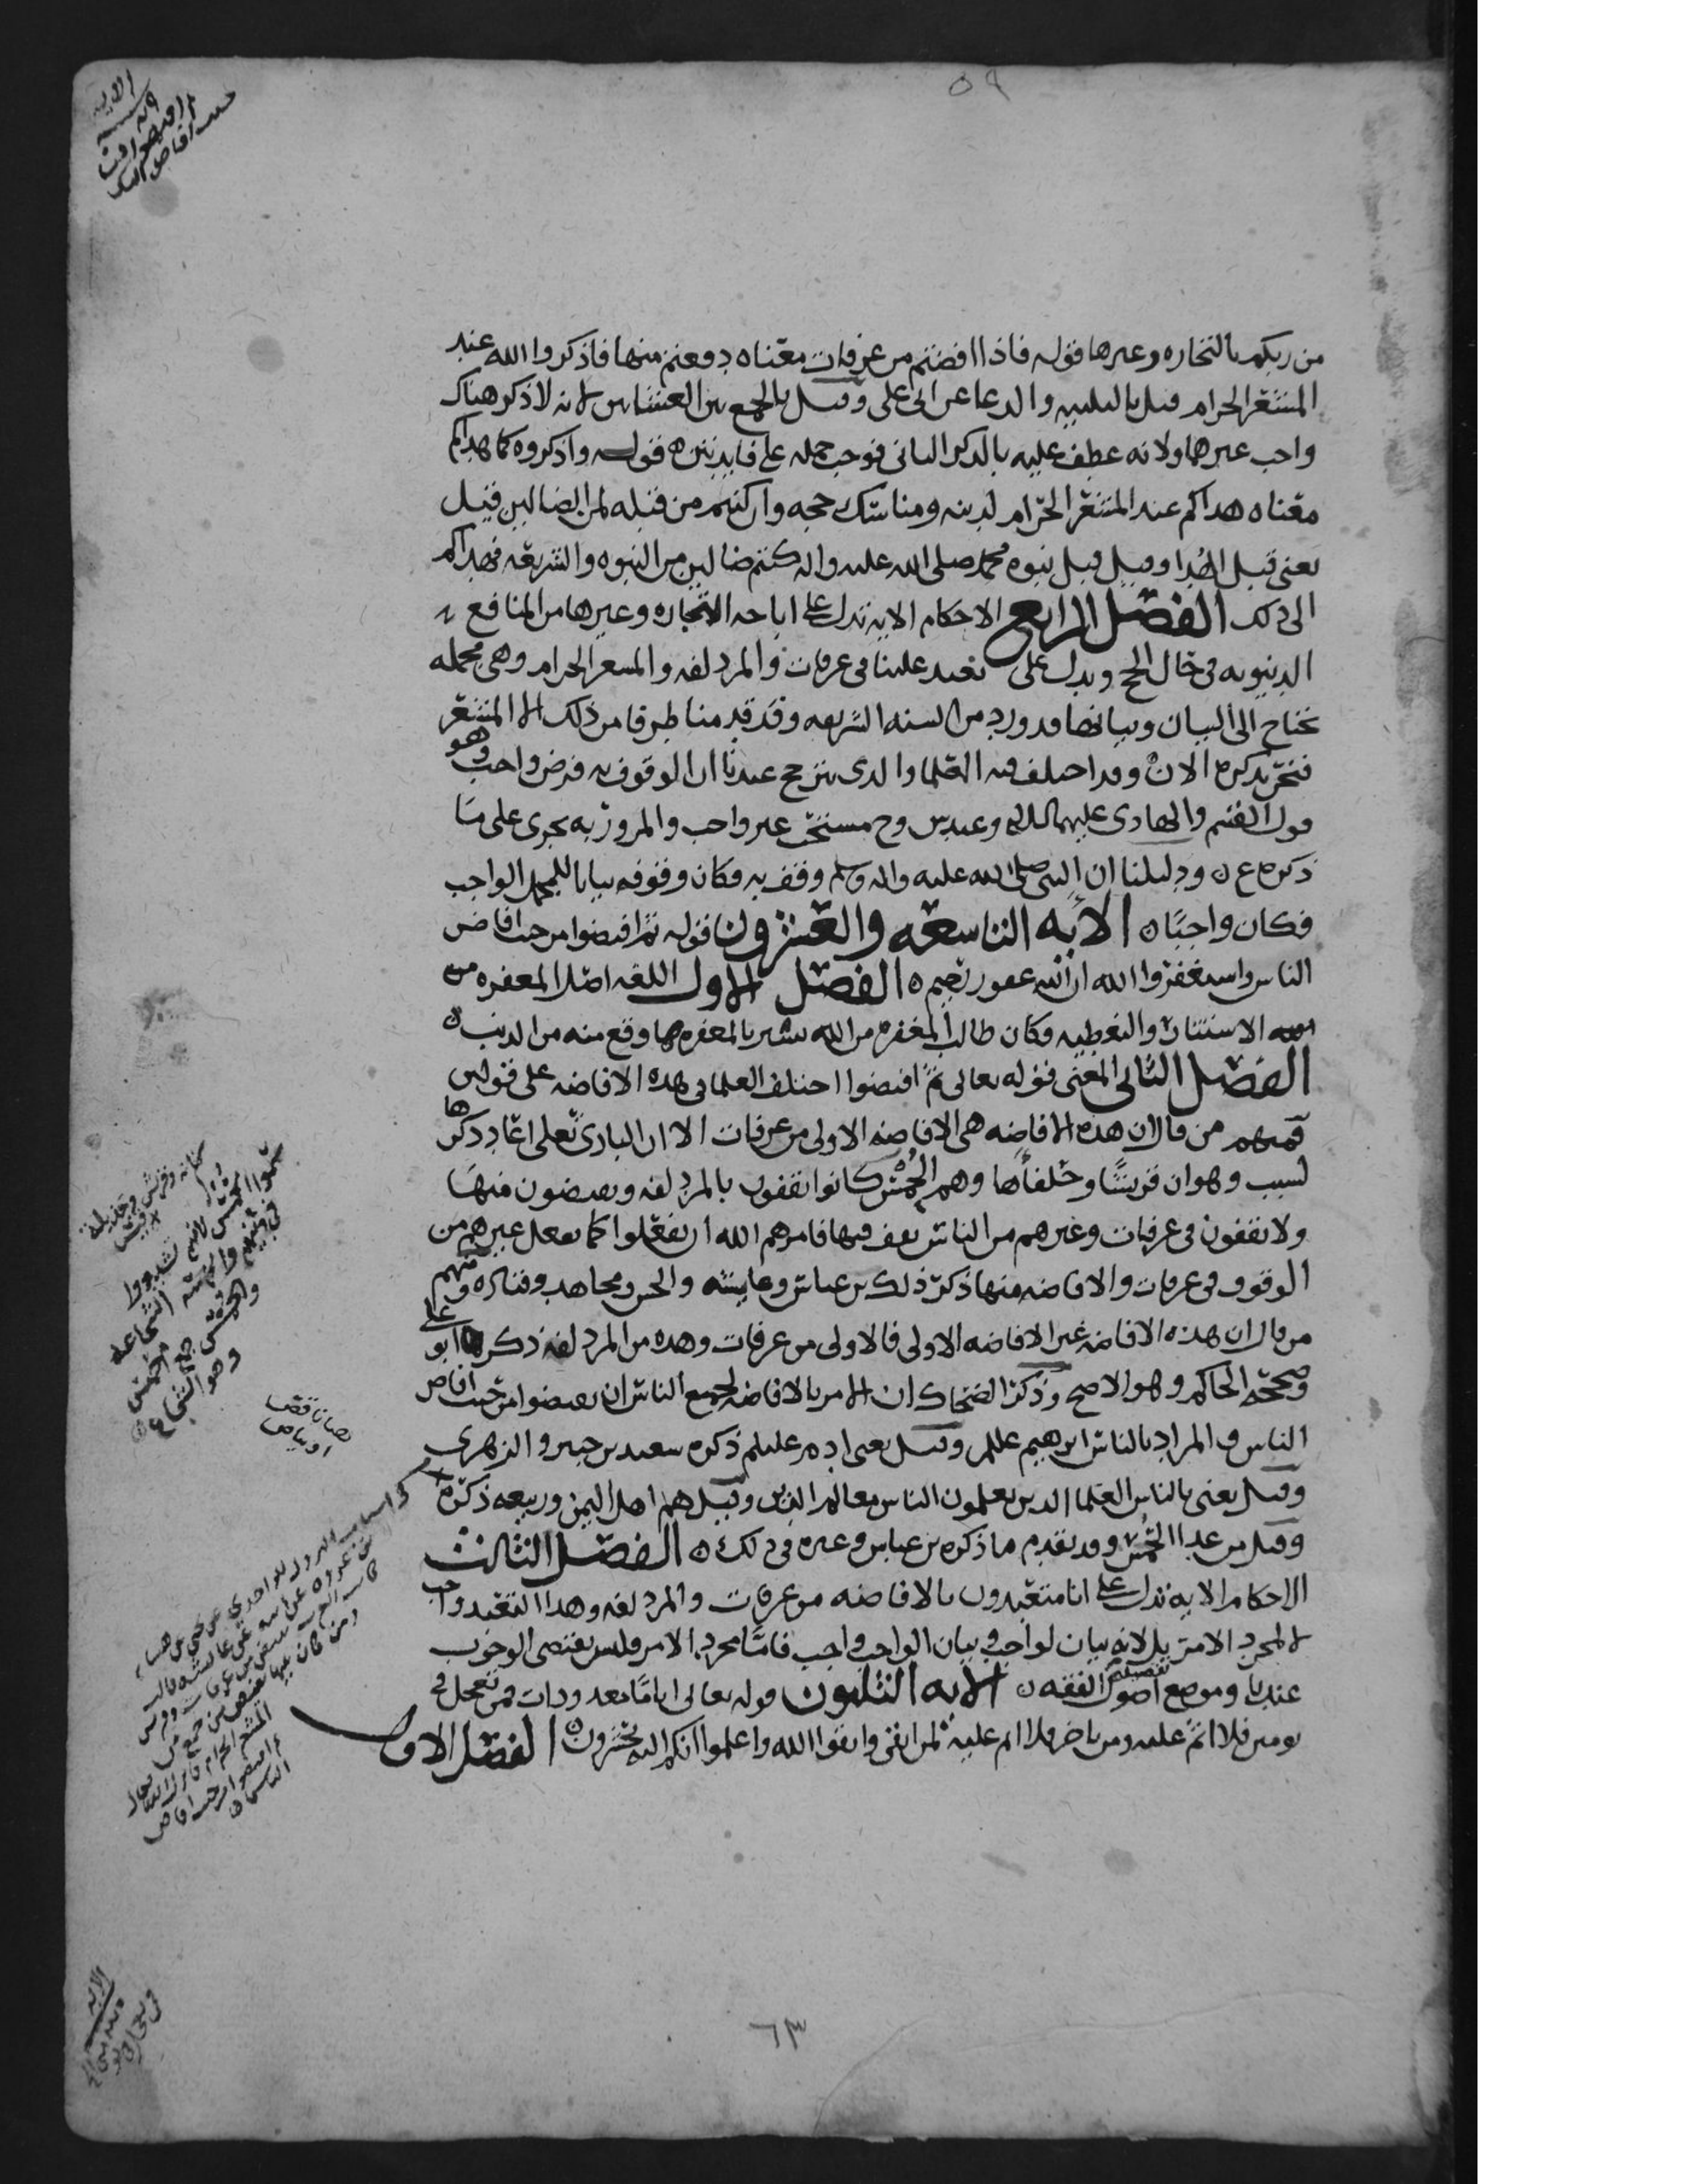 من ربكم بالتجاره وغيرها قوله فاذا افضتم من عرفات معناه دفعتم منها فاذكروا الله عند
المشعر الحرام قيل بالتلبيه والدعا عن ابي علي وقيل بالجمع بين العشاين لانه لا ذكر هناك
واجب غيرهما ولانه عطف عليه بالذكر الثاني فوجب حمله على فايدتين ه قوله واذكروه كما هداكم
معناه هداكم عند المشعر الحرام لدينه ومناسك حجه وان كنتم من قبله لمن الضالين قيل
يعني قبل الهدا وقيل قبل نبوه محمد صلى الله عليه واله كنتم ضالين من النبوه والشريعه فهداكم
الى ذلك الفصل الرابع الاحكام الايه تدل على اباحه التجاره وغيرها من المنافع
الدنيويه في حال الحج ويدل على تعبد علينا في عرفات والمزدلفه والمشعر الحرام وهي مجمله
تحتاج الى البيان وبيانها قد ورد من السنه الشريفه وقد قدمنا طرفا من ذلك الا المشعر
فنحن نذكره الان ه وقد اختلف فيه العلما والذي يترجح عندنا ان الوقوف به فرض واجب وهو
قول القسم والهادي عليهما السلام وعند ش وح مستحب غير واجب والمرور به يجري على ما
ذكره ع ه ودليلنا ان النبي صلى الله عليه واله وسلم وقف به فكان وقوفه بيانا للمجمل الواجب
فكان واجبًا ه الايه التاسعه والعشرون قوله ثم افيضوا من حيث افاض
الناس واستغفروا الله ان الله غفور رحيم ه الفصل الاول اللغه اصل المغفره من
الاستتار والتغطيه فكان طالب المغفره من الله يستر بالمغفره ما وقع منه من الذنب ه
الفصل الثاني المعنى قوله تعالى ثم افيضوا اختلف العلما في هذه الافاضه على قولين
فمنهم من قال ان هذه الافاضه هي الافاضه الاولى من عرفات الا ان الباري تعلى اعاد ذكرها
لسبب وهو ان قريشًا وحلفاها وهم الحُمْسُ كانوا يقفون بالمزدلفه ويفيضون منها
ولا يقفون في عرفات وغيرهم من الناس يقف فيها فامرهم الله ان يفعلوا كما يفعل غيرهم من
الوقوف في عرفات والافاضه منها ذكر ذلك بن عباس وعايشه والحسن ومجاهد وقتاده ومنهم
من قال ان هذه الافاضه غير الافاضه الاولى فالاولى من عرفات وهذه من المزدلفه ذكره ابو علي
وصححه الحاكم وهو الاصح وذكر الضحاك ان الامر بالافاضه لجميع الناس ان يفيضوا من حيث افاض
الناس والمراد بالناس ابرهيم عليلم وقيل يعني ادم عليلم ذكره سعيد بن جبير والزهري
وقيل يعني بالناس العلما الذين يعلمون الناس معالم الدين وقيل هم اهل اليمن وربيعه ذكره
وقيل من عدا الحمس وقد تقدم ما ذكره بن عباس وغيره في ذلك ه الفصل الثالث
الاحكام الايه تدل على انا متعبدون بالافاضه من عرفات والمزدلفه وهذا التعبد واجب
لا لمجرد الامر بل لانه بيان لواجب وبيان الواجب واجب فاما مجرد الامر فليس يقتضي الوجوب
عندنا وموضع تفصيله اصول الفقه ه الايه الثلثون قوله تعالى اياما معدودات فمن تعجل في
يومين فلا اثم عليه ومن تاخر فلا اثم عليه لمن اتقى واتقوا الله واعلموا انكم اليه تحشرون ه الفصل الاول
الايه
ثم افيضوا من
حيث افاض الناس
كنانه وقريش وجديله
سموا الحمس لانهم تشددوا
في دينهم والحماسه الشجاعه
وهو الشجاع
في اسباب النزول للواحدي عن يحي عن هشام
بن عروه عن ابيه عن عائشه قالت
كانت العرب تفيض من عرفات وقريش
المشعر الحرام فانزل الله تعالى
ثم افيضوا من حيث افاض
الناس
الايه
٦٣